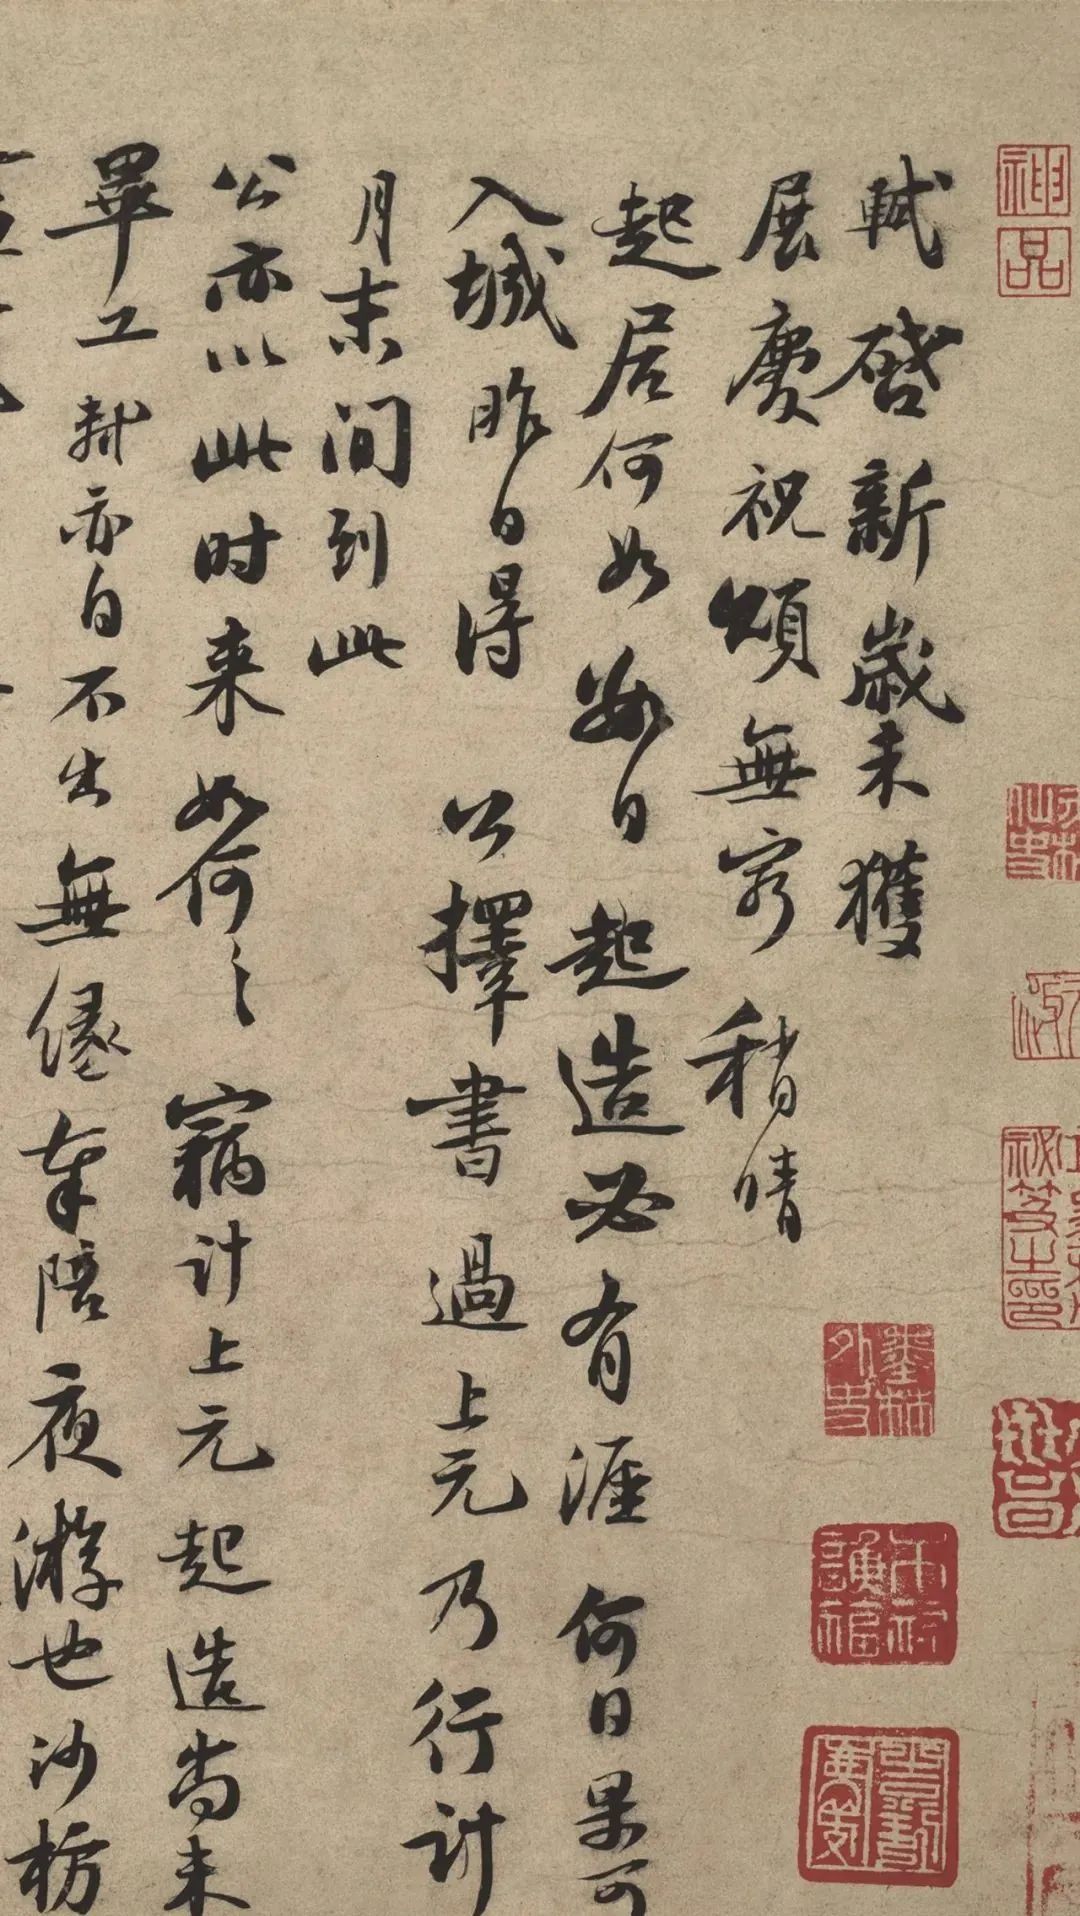 軾啓新歲未獲
展慶祝頌無窮稍晴
起居何如數日起造必有涯何日果可
入城昨日得公擇書過上元乃行計
月末間到此
公亦以此时来如何〻竊計上元起造尚未
畢工軾亦自不出無緣奉陪夜游也沙枋
神品